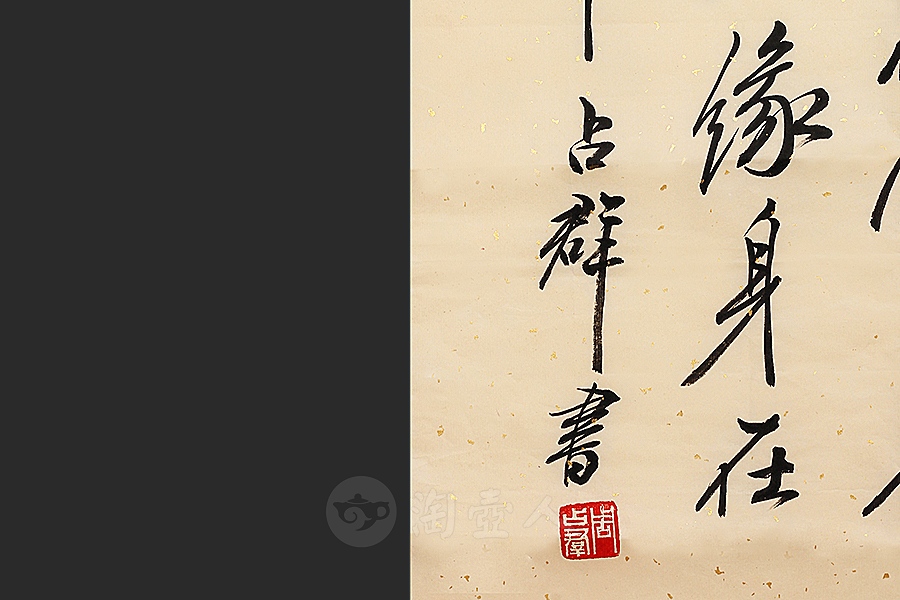 缘身在
占群書
周
占羣
淘壺人